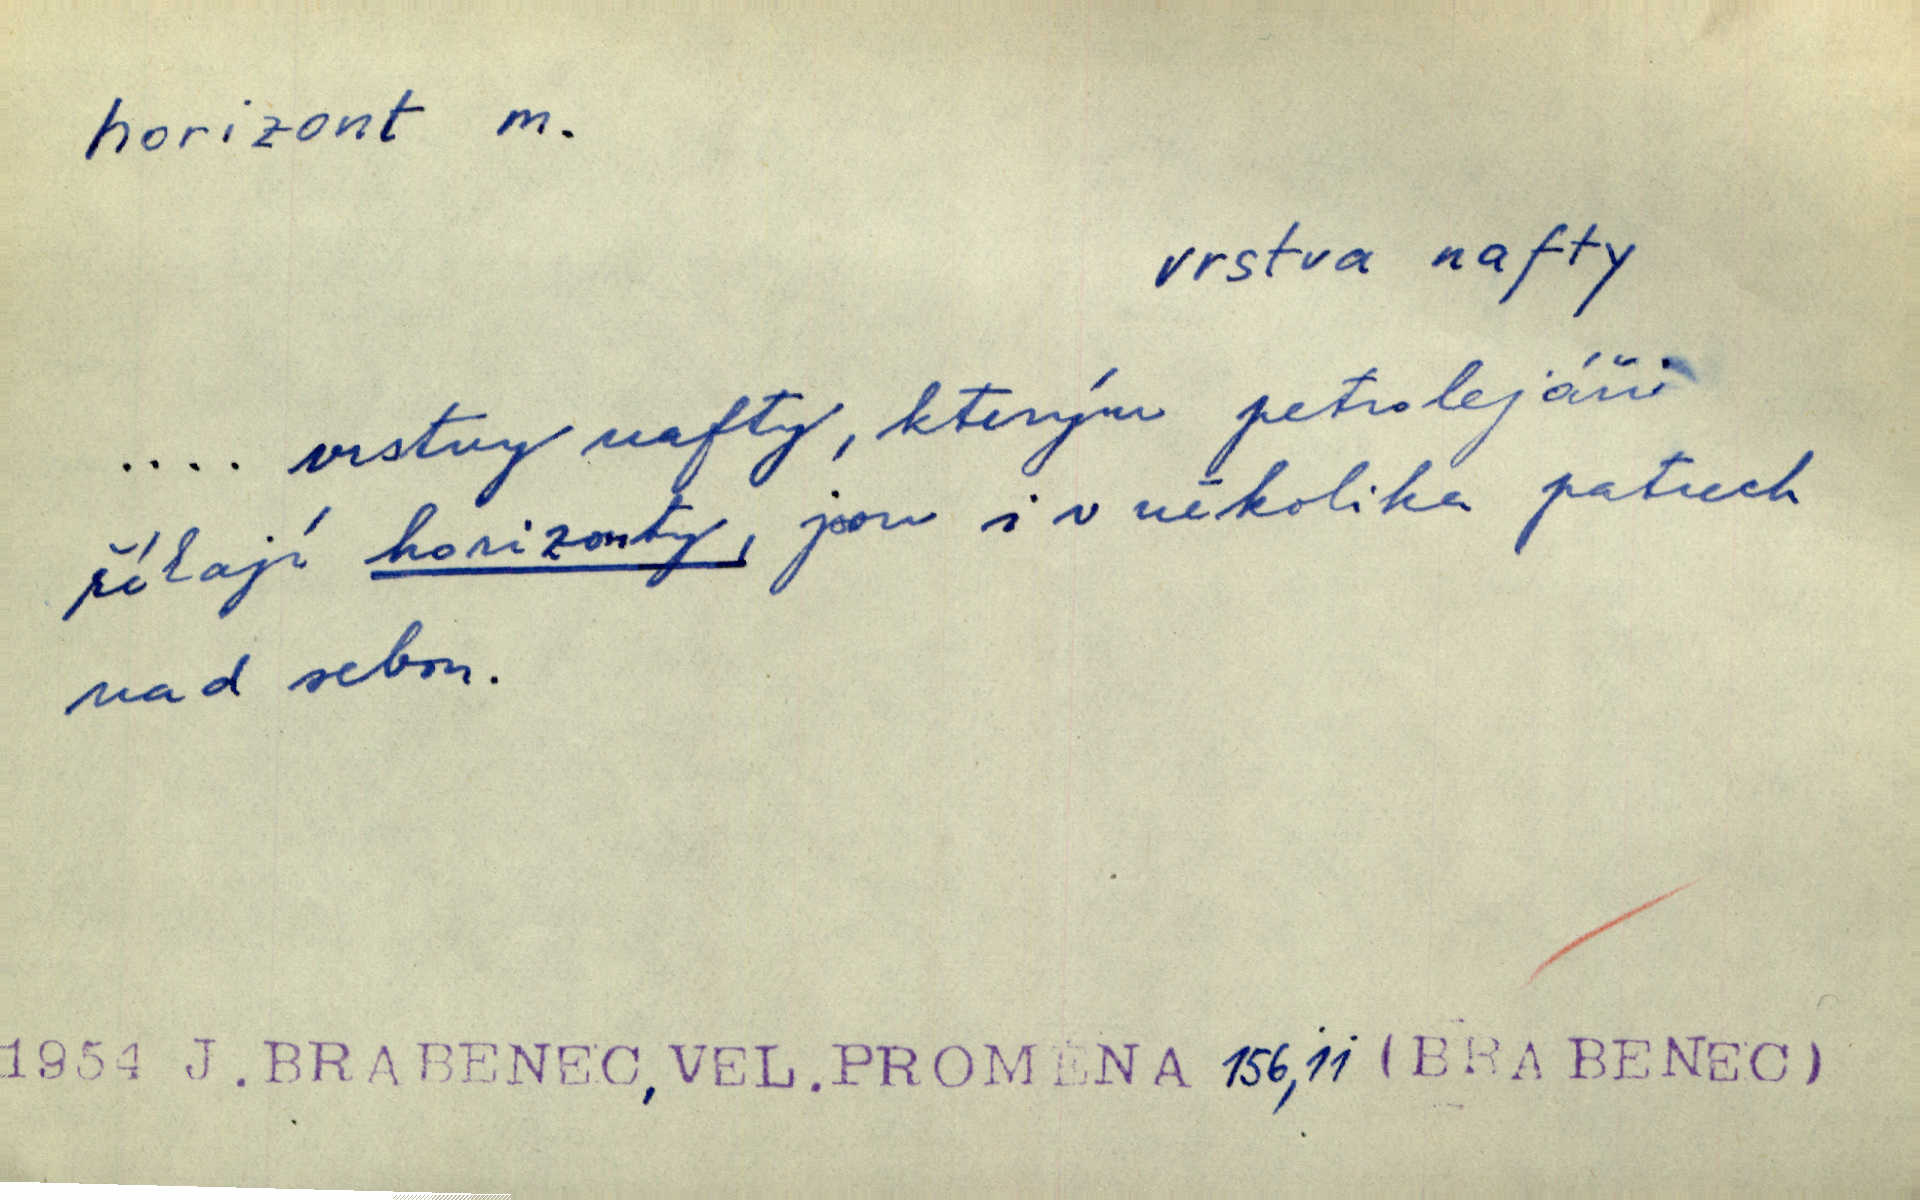 horizont m.
vrstva nafty
.... vrstvy nafty, kterým petrolejáři
říkají horizonty, jsou i v několika patrech
nad sebou.
1954 J.BRABENEC,VEL.PROMĚNA 156,11 (BRABENEC)